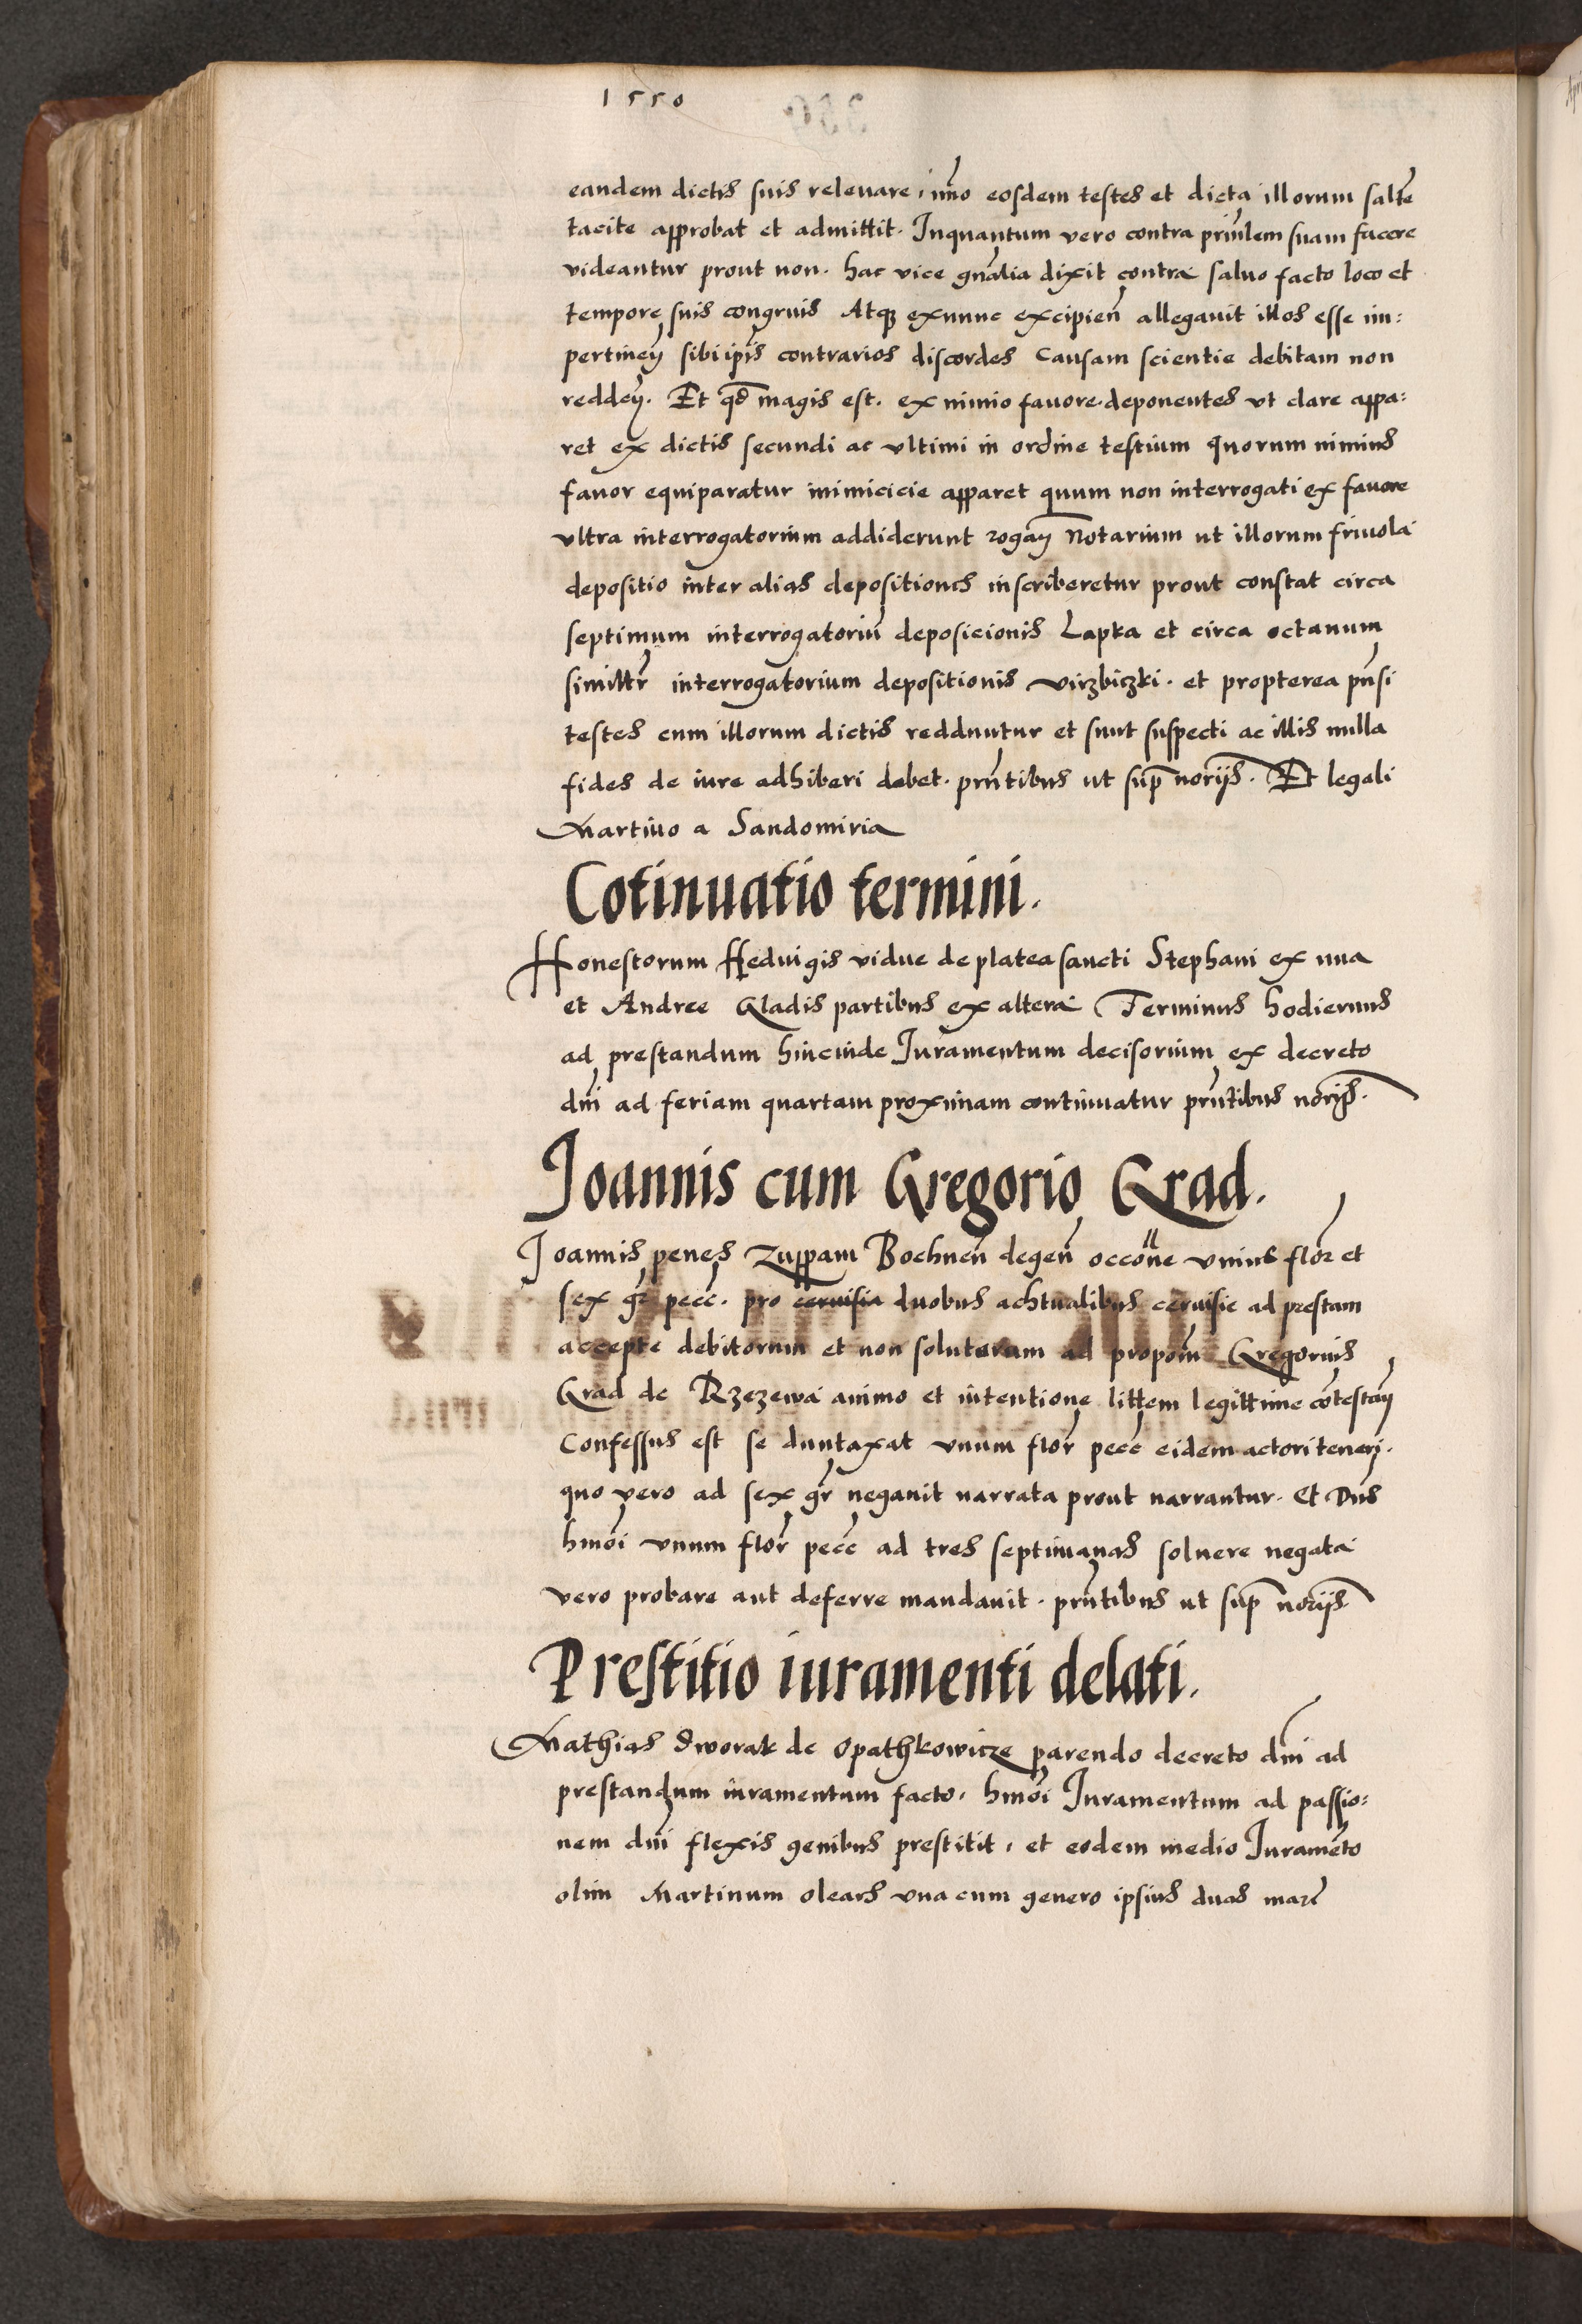 1550
eandem dictis suis relevare, imo eosdem testes et dicta illorum salte
tacite approbat et admittit. Inquantum vero contra prinlem suam facere
videantur prout non. hac vice gnalia dixit contra salvo facto loco et
tempore suis congruis Atq3 exnunc excipien allegavit illos esse im:
pertinen sibi ipis contrarios discordes Causam scientie debitam non
redden. Et qd magis est. ex nimio favore deponentes ut clare appa:
ret ex dictis secundi ac ultimi in ordine testium quorum nimius
favor equiparatur inimicicie apparet quum non interrogati ex favore
ultra interrogatorium addiderunt rogan Notarium ut illorum frivola
depositio inter alias depositiones inscriberetur prout constat circa
septimum interrogatoriu deposicionis Lapka et circa octavum
similtr interrogatorium depositionis Virzbiczki. et propterea pnsi
testes cum illorum dictis redduntur et sunt suspecti ac illis nulla
fides de iure adhiberi debet. pntibus ut sup norijs. Et legali
Martino a Sandomiria
Cotinuatio termini.
Honestorum Hedvigis vidue de platea sancti Stephani ex una
et Andree Gladis partibus ex altera Terminus hodiernus
ad prestandum hincinde Iuramentum decisorium ex decreto
dni ad feriam quartam proximam continuatur pntibus norijs.
Ioannis cum Gregorio Grad.
Ioannis penes Zuppam Bochnen degen occone unius flor et
sex gr pecc. pro cervisia duobus achtualibus cervisie ad prestam
accepte debitorum et non solutorum ad propom Gregorius
Grad de Rzezewa animo et intentione littem legittime cotestan
Confessus est se duntaxat unum flor pecc eidem actori teneri.
quo vero ad sex gr negavit narrata prout narrantur. Et Dns
hmoi unum flor pecc ad tres septimanas solvere negata
vero probare aut deferre mandavit. pntibus ut sup norijs
Prestitio iuramenti delati.
Mathias Dworak de Opathkowicze parendo decreto dni ad
prestandum iuramentum facto, hmoi Iuramentum ad passio:
nem dni flexis genibus prestitit, et eodem medio Iurameto
olim Martinum olears una cum genero ipsius duas marc